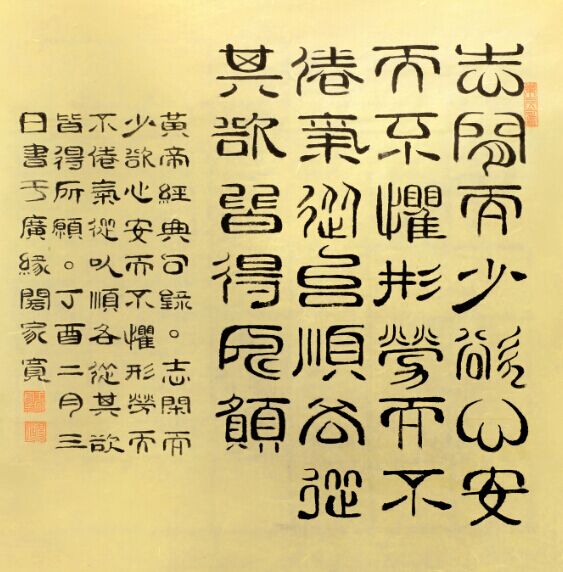 志閒而少欲心安
而不懼形勞而不
倦氣從以順各從
其欲皆得所願
黃帝經典句錄。志閑而
少欲心安而不懼形勞而
不倦氣從以順各從其欲
皆得所願。丁酉二月三
日書于廣緣閣家寬